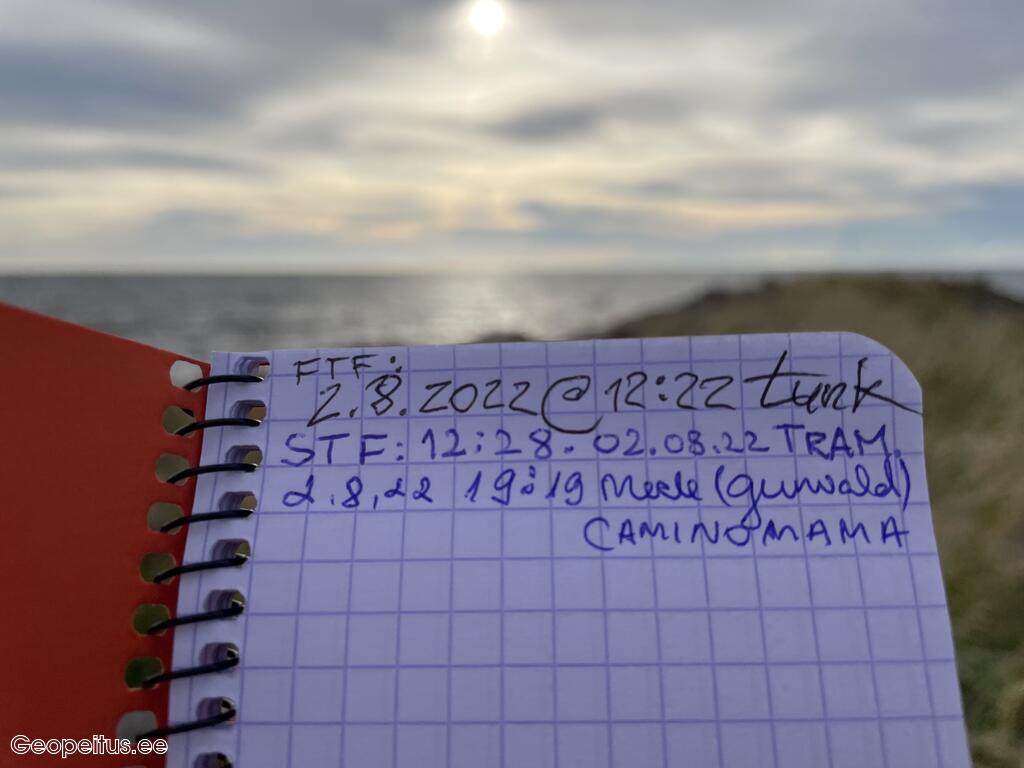 FTF:
2.8.2022@12:22 tunk
STF: 12:28. 02.08.22 TRAM.
2.8.22 19:19 (gunvald)
CAMINOMAMA
Geopeitus.ee